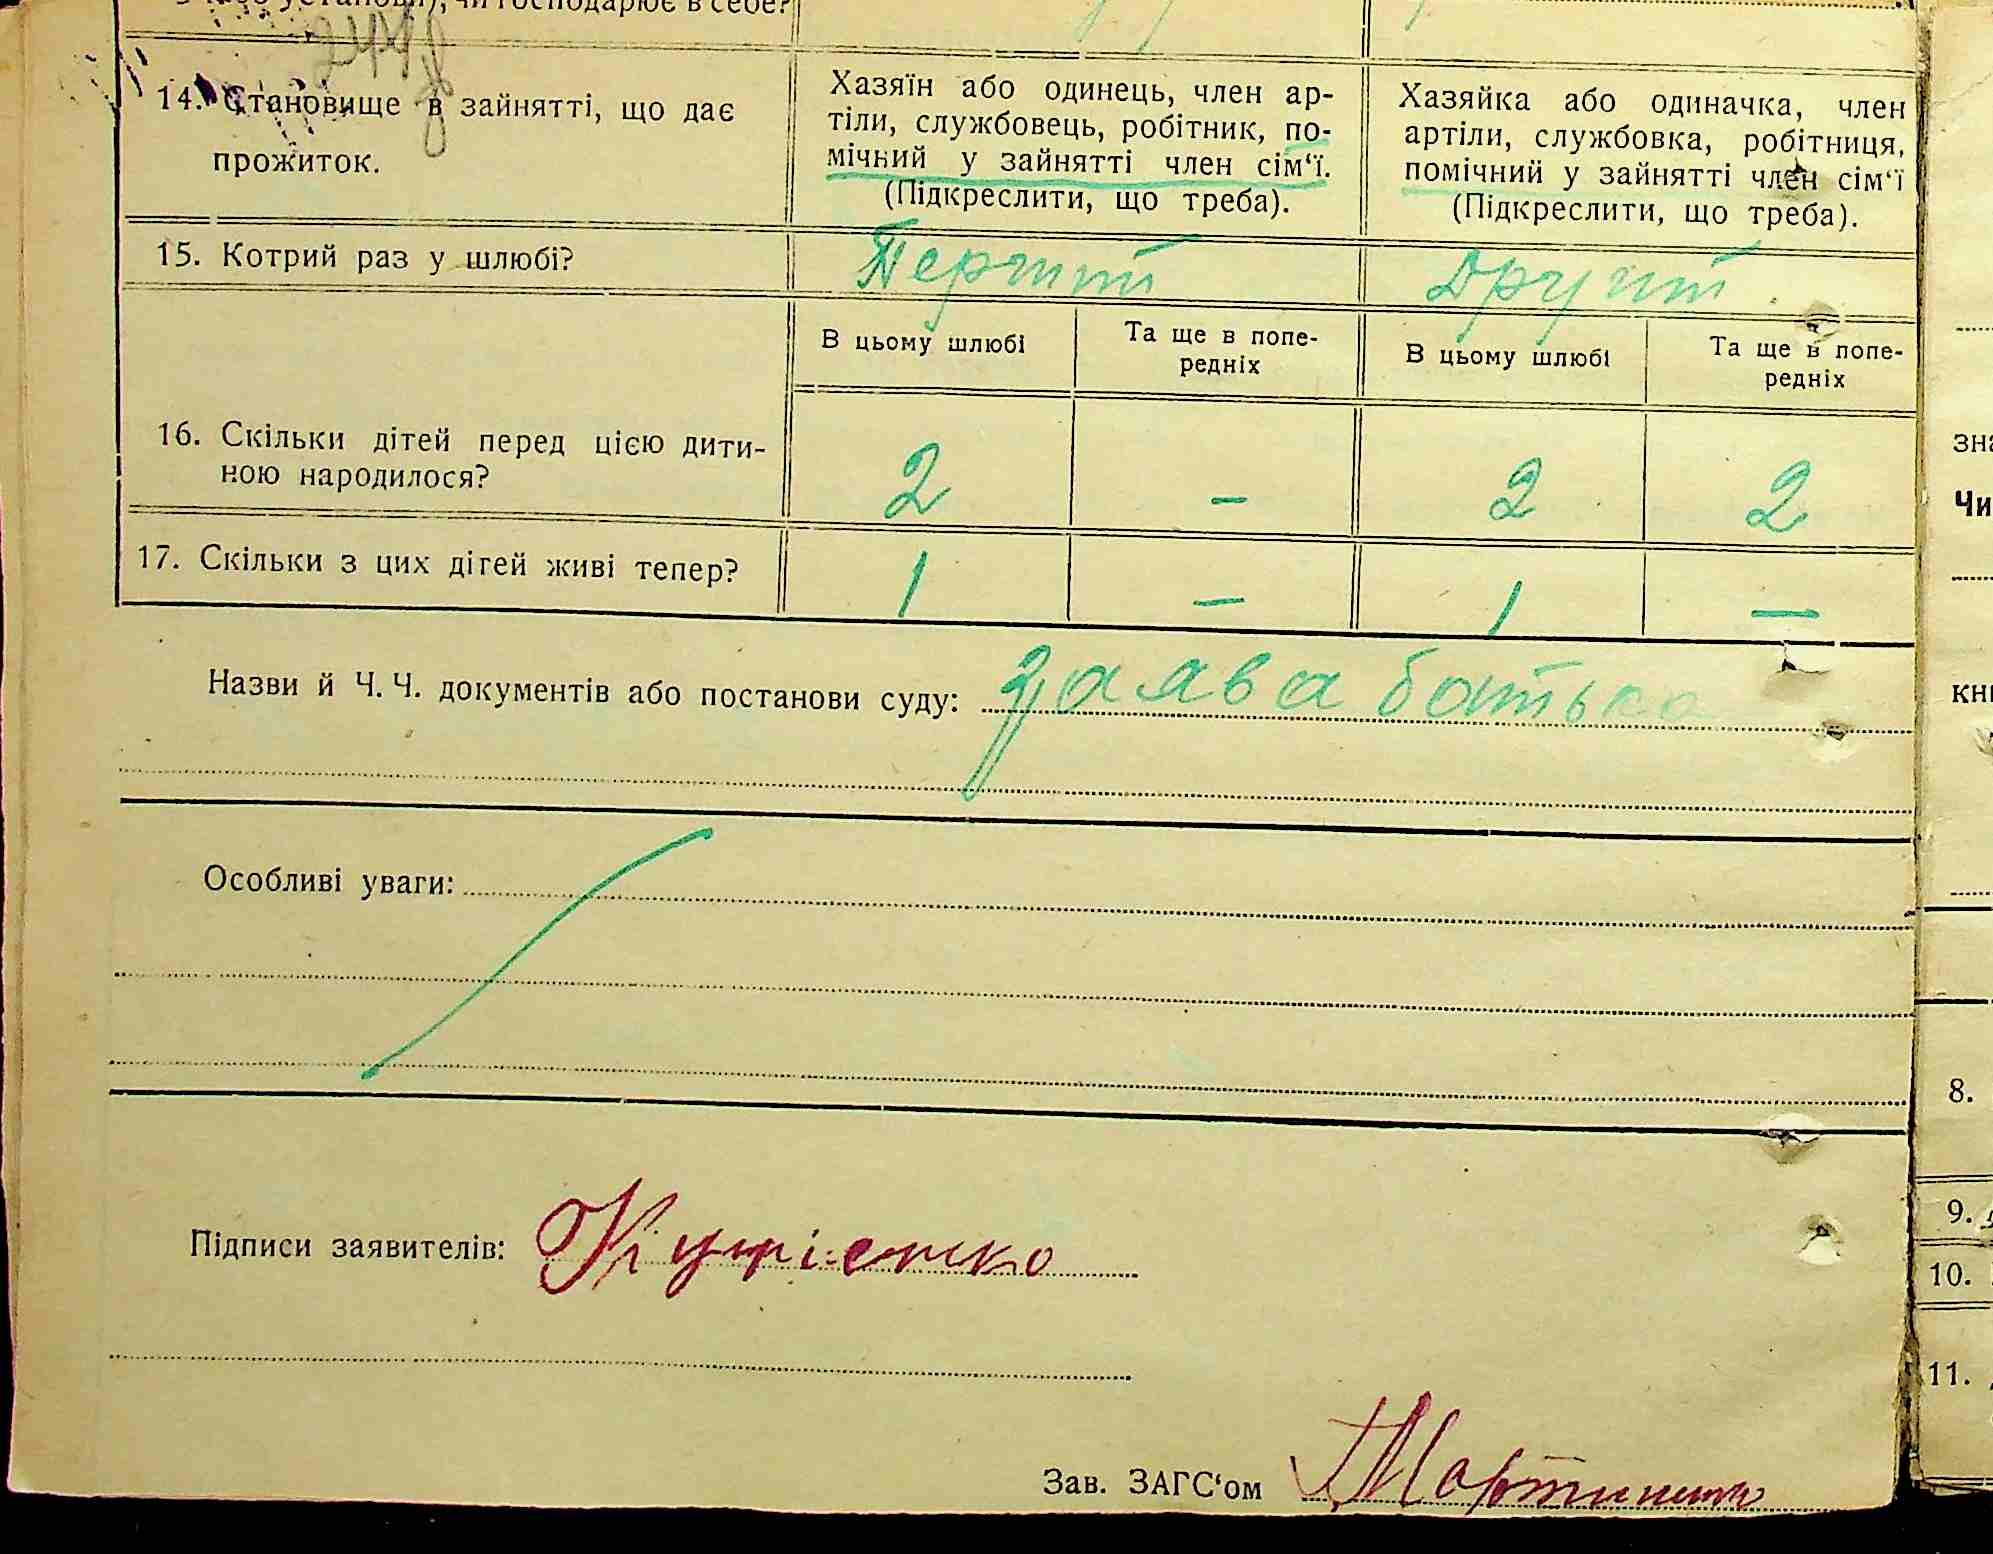 установи), чи господарює в себе?
14. Становище в зайнятті, що дає
прожиток.
Хазяїн або одинець, член ар-
тіли, службовець, робітник, по-
мічний у зайнятті член сім‘ї.
(Підкреслити, що треба).
Хазяйка або одиначка, член
артіли, службовка, робітниця,
помічний у зайнятті член сім‘ї
(Підкреслити, що треба).
15. Котрий раз у шлюбі?
Перший
Другий
В цьому шлюбі
Та ще в попе-
редніх
В цьому шлюбі
Та ще в попе-
редніх
16. Скільки дітей перед цією дити-
ною народилося?
2 - 2 2
17. Скільки з цих дітей живі тепер?
1 - 1 -
Назви й Ч. Ч. документів або постанови суду: заява батька
Особливі уваги:
Підписи заявителів:
Зав. ЗАГС‘ом
зна
Чи
кни
8.
9.
10.
11.